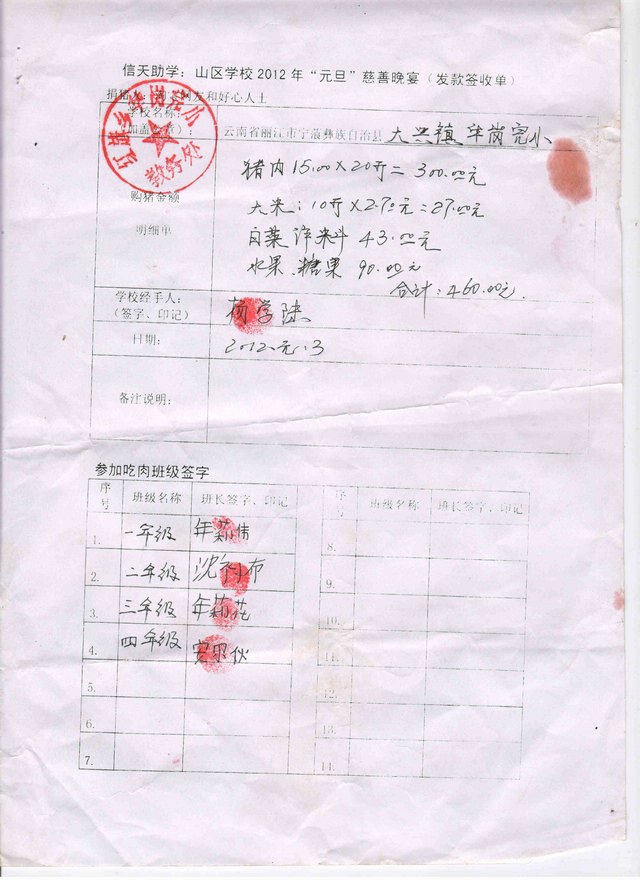 信天助学：山区学校2012年“元旦”慈善晚宴（发款签收单）
捐猪人：淘宝网友和好心人士
学校名称：
（加盖公章）：
云南省丽江市宁蒗彝族自治县 大兴镇 羊岗完小
教务处
购猪金额
明细单
猪肉15.00×20斤＝300.00元
大米：10斤×2.70元＝27.00元
白菜 佐料 43.00元
水果、糖果 90.00元
合计：460.00元.
学校经手人：
（签字、印记）
杨学陆
日期：
2012.元.3
备注说明：
参加吃肉班级签字
序号 班级名称 班长签字、印记 序号 班级名称 班长签字、印记
1. 一年级 年莉伟 8.
2. 二年级 沈 布 9.
3. 三年级 年莉花 10.
4 四年级 安 伙 11.
5. 12.
6. 13.
7. 14.